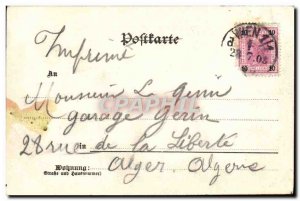 Postkarte
Imprimé
WIEN
An
Monsieur Le Génie
Garage Gerin
28 rue de la Liberté
in
Alger Algérie
Wohnung:
(Straße und Hausnummer)